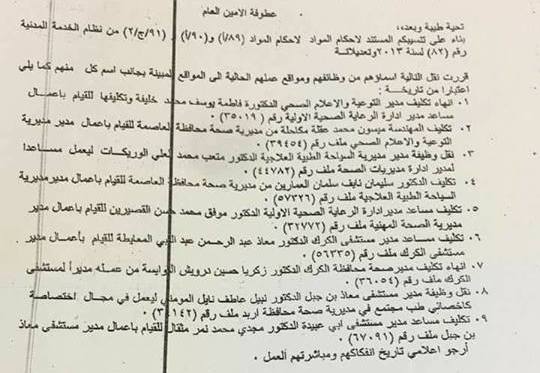 عطوفة الامين العام
تحية طيبة وبعده،
بناء على تنسيبكم المستند لاحكام المواد لاحكام المواد (٨٩/أ) و(٩٠/أ) , (٩١/ج/٢) من نظام الخدمة المدنية
رقم (٨٢) لسنة ٢٠١٣ وتعديلاتة
قررت نقل التالية اسماؤهم من وظائفهم ومواقع عملهم الحالية الى المواقع المبينة بجانب اسم كل منهم كما يلي
اعتبارا من تاريخة :
١. انهاء تكليف مدير التوعية والاعلام الصحي الدكتورة فاطمة يوسف محمد خليفة وتكليفها للقيام باعمال
مساعد مدير ادارة الرعاية الصحية الاولية ملف رقم (٣٥٠١٩)
٢. تكليف المهندسة ميسون محمد عقلة مكاحلة من مديرية صحة محافظة العاصمة للقيام باعمال مدير مديرية
التوعية والاعلام الصحي ملف رقم (٣٩٤٥٤)
٣. نقل وظيفة مدير مديرية السياحة الطبية العلاجية الدكتور متعب محمد علي الوريكات ليعمل مساعدا
لمدير ادارة مديريات الصحة ملف رقم (٤٤٧٨٢)
٤. تكليف الدكتور سليمان نايف سلمان العمارين من مديرية صحة محافظة العاصمة للقيام باعمال مدير مديرية
السياحة الطبية العلاجية ملف رقم (٥٧٣٢٦)
٥. تكليف مساعد مدير ادارة الرعاية الصحية الاولية الدكتور موفق محمد حسن القصيرين للقيام باعمال مدير
مديرية الصحة المهنية ملف رقم (٣٢٧٧٢)
٦. تكليف مساعد مدير مستشفى الكرك الدكتور معاذ عبد الرحمن عبد النبي المعايطة للقيام بأعمال مدير
مستشفى الكرك ملف رقم (٥٦٣٣٥)
٧. انهاء تكليف مدير صحة محافظة الكرك الدكتور زكريا حسين درويش النوايسة من عمله مديراً لمستشفى
الكرك ملف رقم (٣٦٠٥٤)
٨. نقل وظيفة مدير مستشفى معاذ بن جبل الدكتور نبيل عاطف نايل المومني ليعمل في مجال اختصاصة
كاخصائي طب مجتمع في مديرية صحة محافظة اربد ملف رقم
٩. تكليف مساعد مدير مستشفى ابي عبيدة الدكتور مجدي محمد نمر ملقال للقيام باعمال مدير مستشفى معاذ
بن جبل ملف رقم (٦٧٠٩١)
أرجو اعلامي تاريخ انفكاكهم ومباشرتهم العمل .